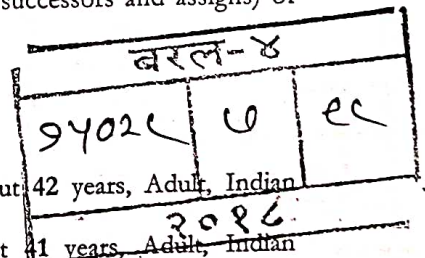 successors and assigns) of
बरल-४
१५०२८ ७ ९८
ut 42 years, Adult, Indian
२०१८
t 41 years, Adult, Indian